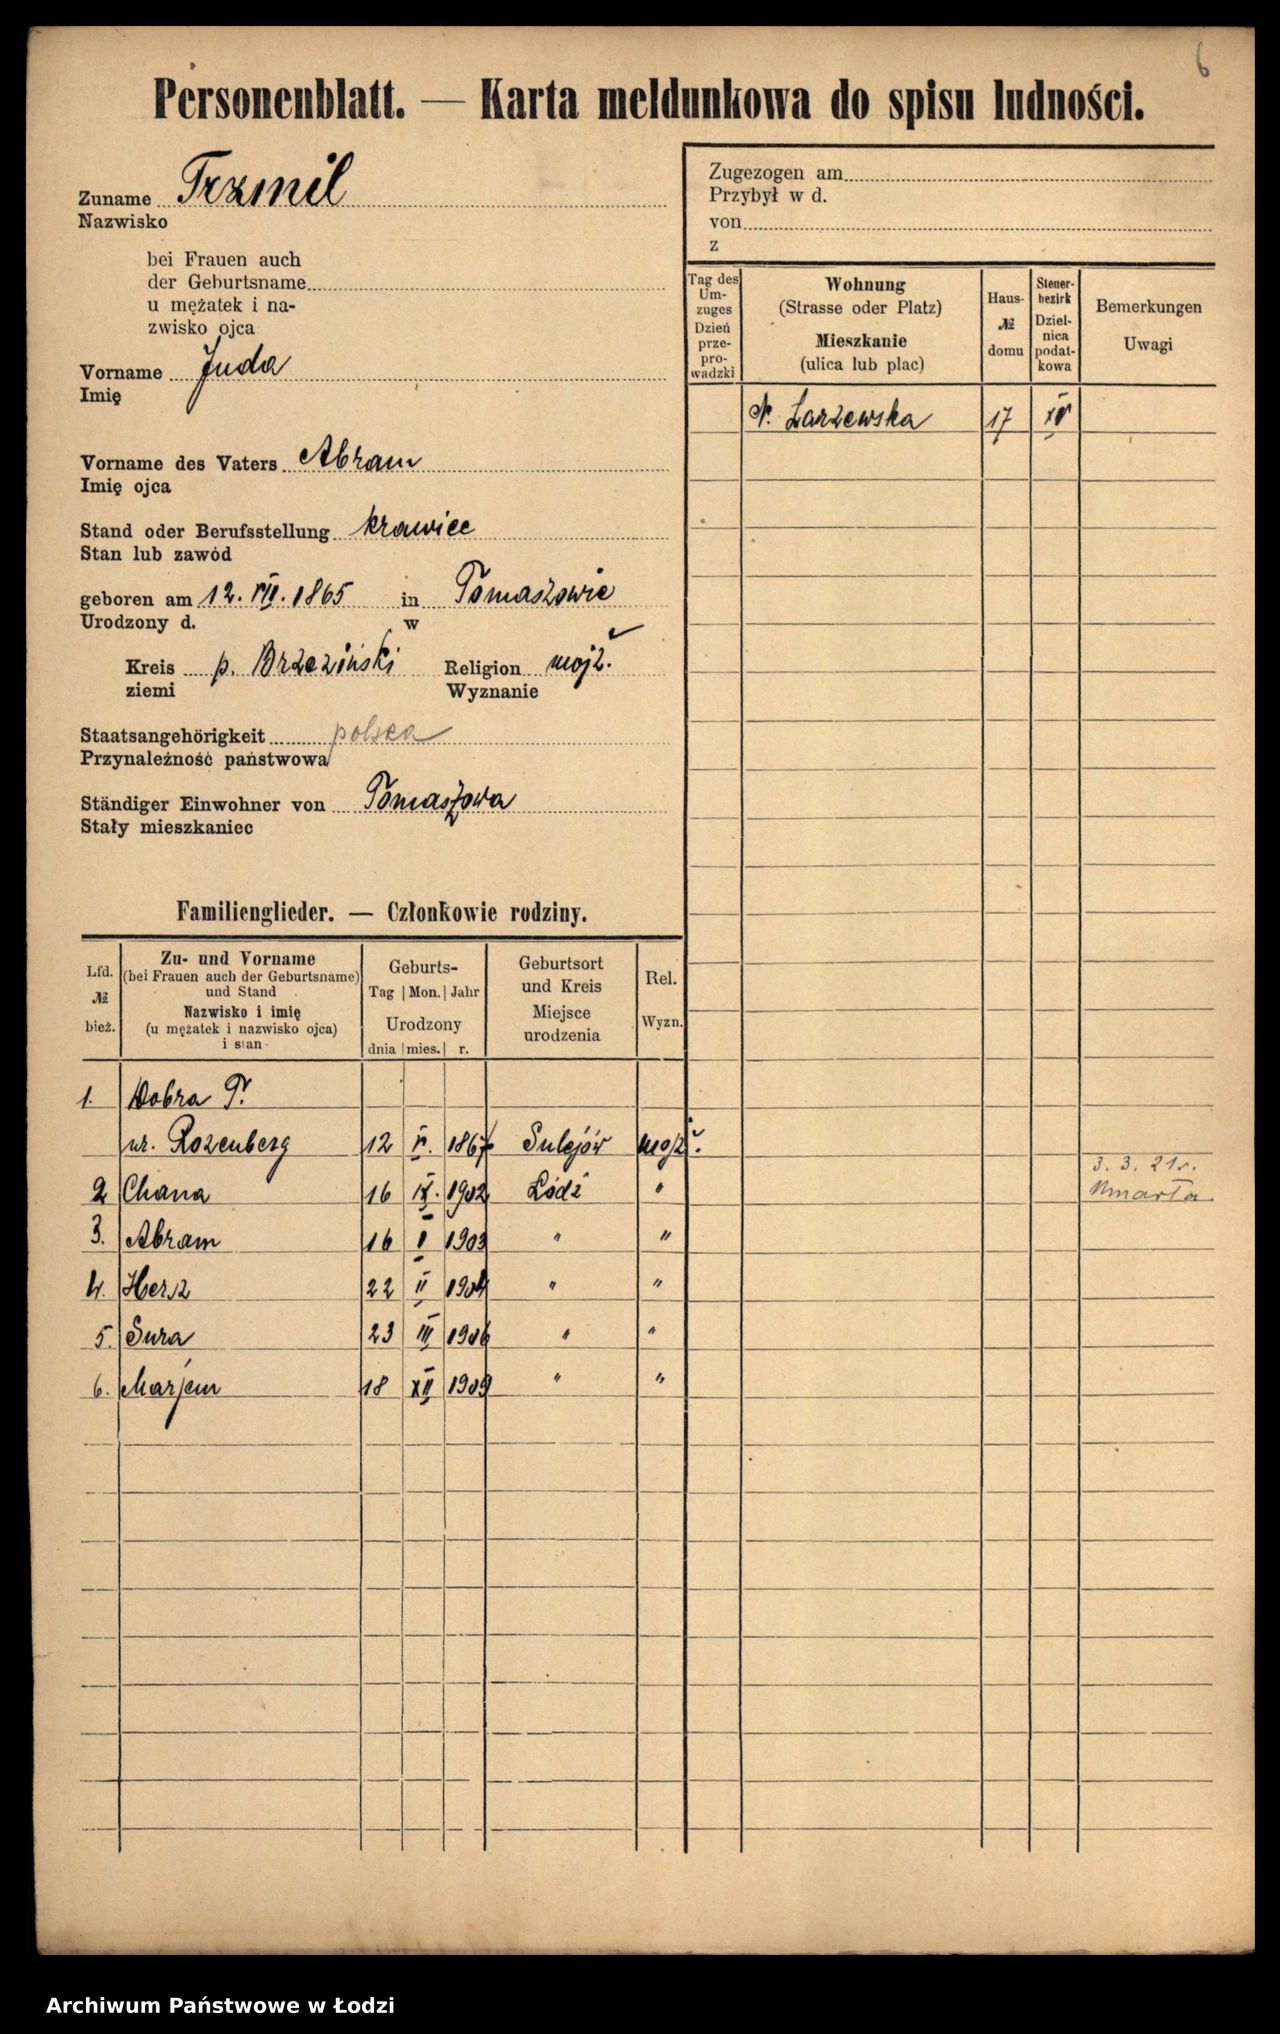 6
Personenblatt. — Karta meldunkowa do spisu ludności.
Zuname Trzmil
Nazwisko
bei Frauen auch
der Geburtsname
u mężatek i na-
zwisko ojca
Vorname Juda
Imię
Vorname des Vaters Abram
Imię ojca
Stand oder Berufsstellung krawiec
Stan lub zawód
geboren am 12. VII. 1865 in Tomaszowie
Urodzony d. w
Kreis p. Brzeziński Religion mojż.
ziemi Wyznanie
Staatsangehörigkeit polska
Przynależność państwowa
Ständiger Einwohner von Tomaszowa
Stały mieszkaniec
Zugezogen am
Przybył w d.
von
z
Tag des Um-zuges Dzień prze-pro-wadzki
Wohnung
(Strasse oder Platz)
Mieszkanie
(ulica lub plac)
Haus- № domu
Steuer-bezirk Dziel-nica podat-kowa
Bemerkungen
Uwagi
N. Zarzewska 17 XV
Familienglieder. — Członkowie rodziny.
Lfd. № bież.
Zu- und Vorname
(bei Frauen auch der Geburtsname)
und Stand
Nazwisko i imię
(u mężatek i nazwisko ojca)
i stan
Geburts-
Tag | Mon. | Jahr
Urodzony
dnia | mies. | r.
Geburtsort
und Kreis
Miejsce
urodzenia
Rel.
Wyzn.
1. Dobra T.
ur. Rozenberg 12 V. 1867 Sulejów mojż.
2 Chana 16 IX. 1902 Łódź " 3. 3. 21r. Umarła
3. Abram 16 I 1903 " "
4. Hersz 22 II 1904 " "
5. Sura 23 III 1906 " "
6. Marjem 18 XII 1909 " "
Archiwum Państwowe w Łodzi